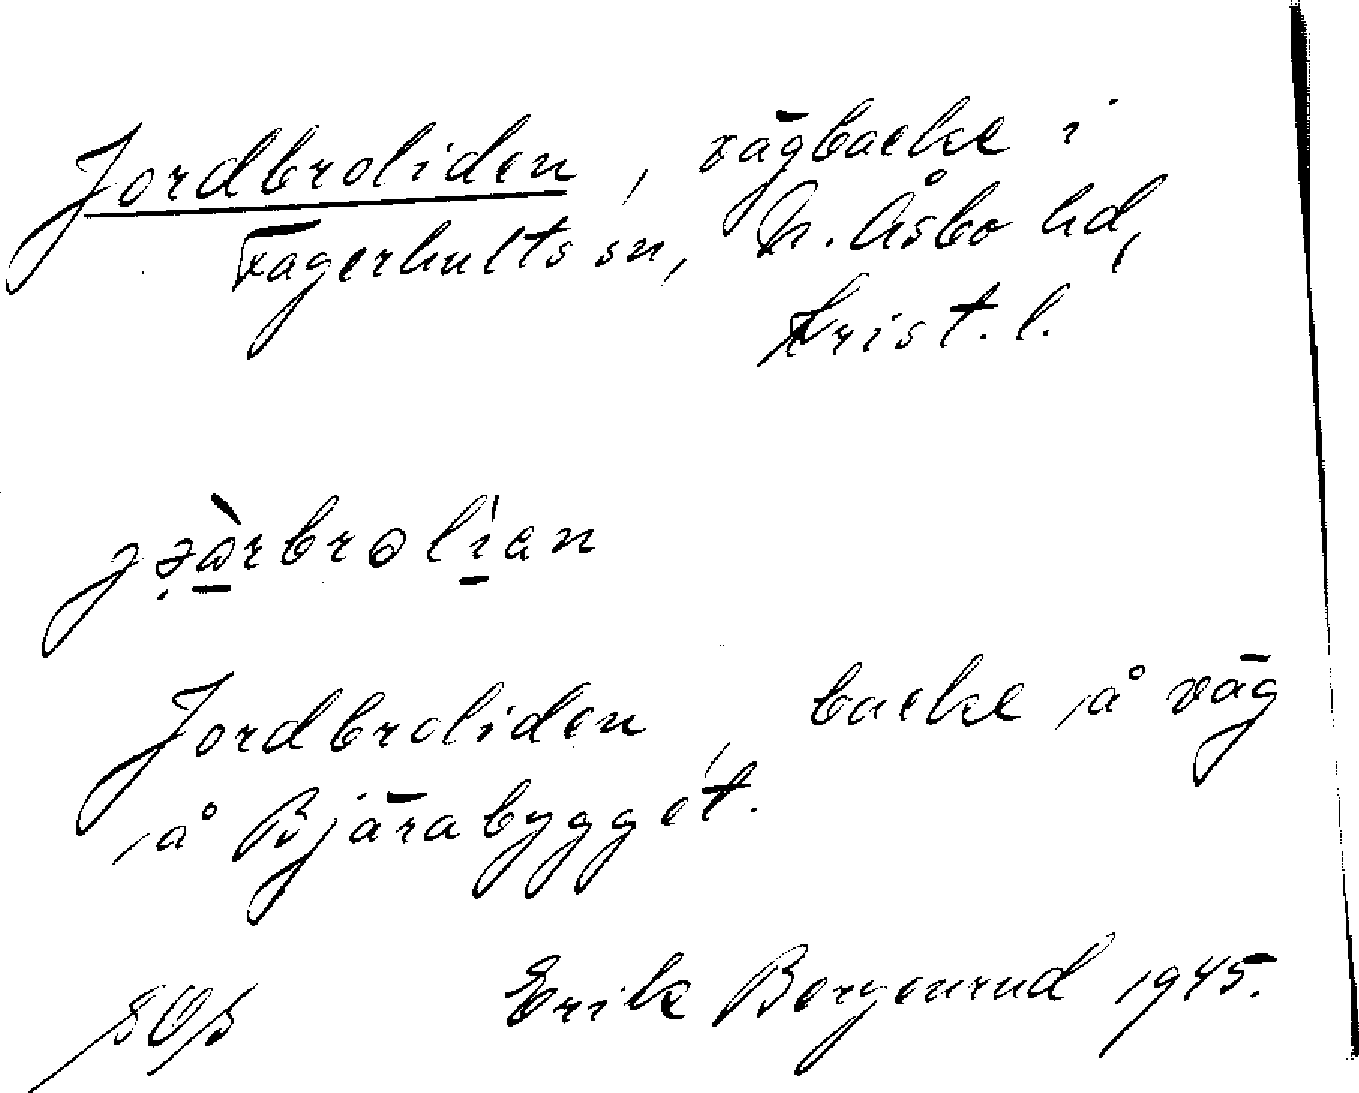 Jordbroliden, vägbacke i
Fagerhults sn, N. Åsbo hd,
Krist. l.
Jordbroliden, backe å väg
å Bjärabygget.
Erik Bergenrud 1945.